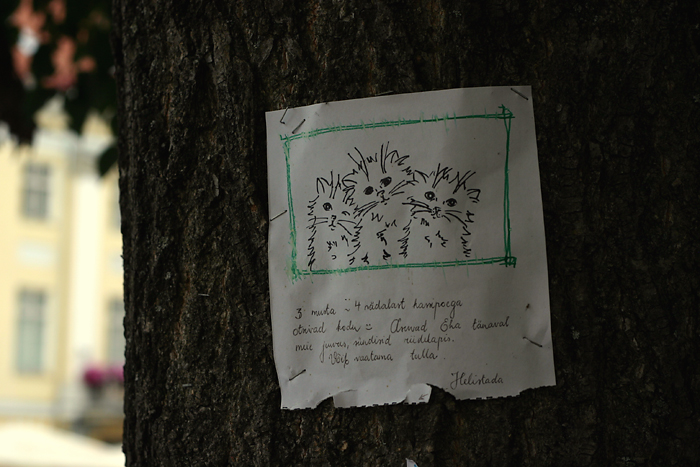 3 musta ~ 4 nädalast kassipoega
otsivad kodu = Asuvad Eha tänaval
meie juures, sündind riidekapis.
Võib vaatama tulla.
Helistada